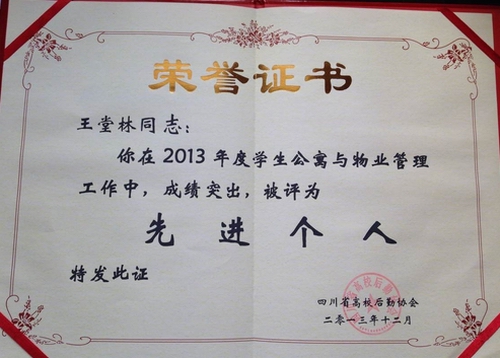 荣誉证书
王堂林同志：
你在2013年度学生公寓与物业管理
工作中，成绩突出，被评为
先进个人
特发此证
四川省高校后勤协会
二〇一三年十二月